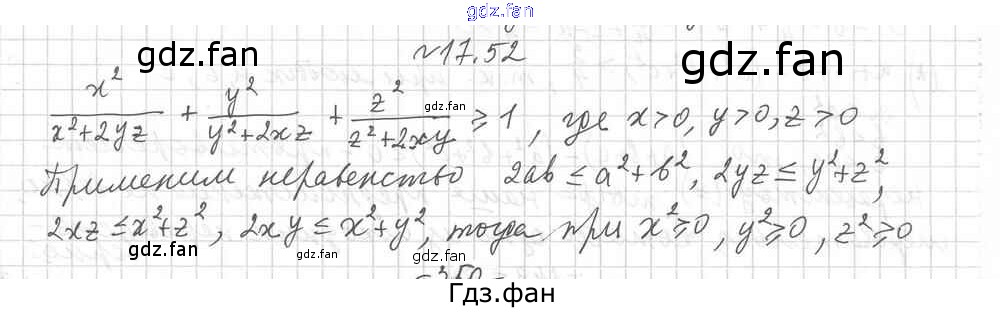 gdz.fan
№17.52
gdz.fan gdz.fan
x²/(x²+2yz) + y²/(y²+2xz) + z²/(z²+2xy) ≥ 1, где x>0, y>0, z>0
gdz.fan gdz.fan
Применим неравенство 2ab ≤ a²+b², 2yz ≤ y²+z²,
2xz ≤ x²+z², 2xy ≤ x²+y², тогда при x²≥0, y²≥0, z²≥0
gdz.fan gdz.fan
Гдз.фан